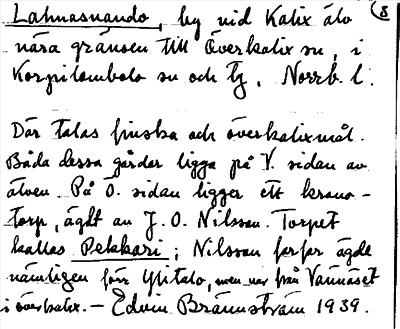 Lahnasuando, by vid Kalix älv (8
nära gränsen till Överkalix sn, i
Korpilombolo sn och tg, Norrb. l.
Där talas finska och överkalixmål.
Båda dessa gårdar ligga på V. sidan av
älven. På Ö. sidan ligger ett krono-
torp, ägt av J. O. Nilsson. Torpet
kallas Pekkari; Nilssons farfar ägde
nämligen förr Ylitalo, men var från Vännäset
i Överkalix. – Edvin Brännström 1939.